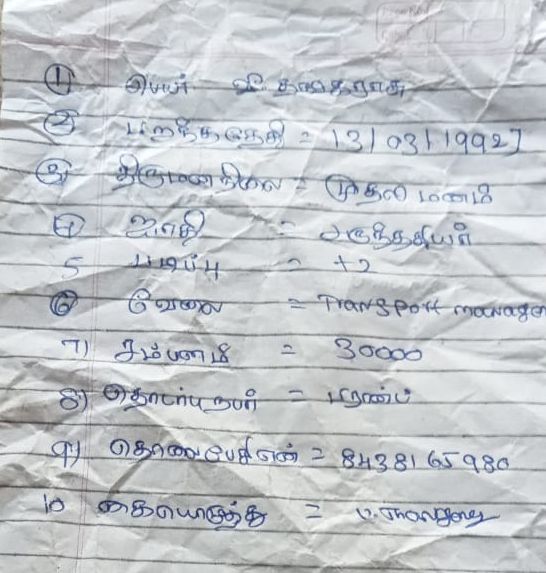 1 பெயர் வி. தங்கதுரை
2 பிறந்த தேதி = 13/03/1992
3) திருமணநிலை = முதல் மணம்
4 ஜாதி = அருந்ததியர்
5 படிப்பு = +2
6 வேலை = Transport manager
7) சம்பளம் = 30000
8) தொடர்புநபர் =
9) தொலைபேசி எண் = 8438165980
10 கையெழுத்து =